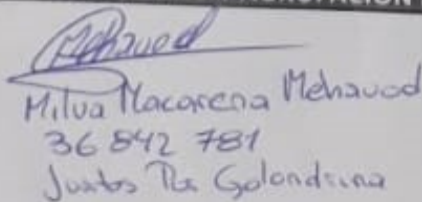 Mehauod
Milva Macarena Mehauod
36 842 781
Juntos Golondrina